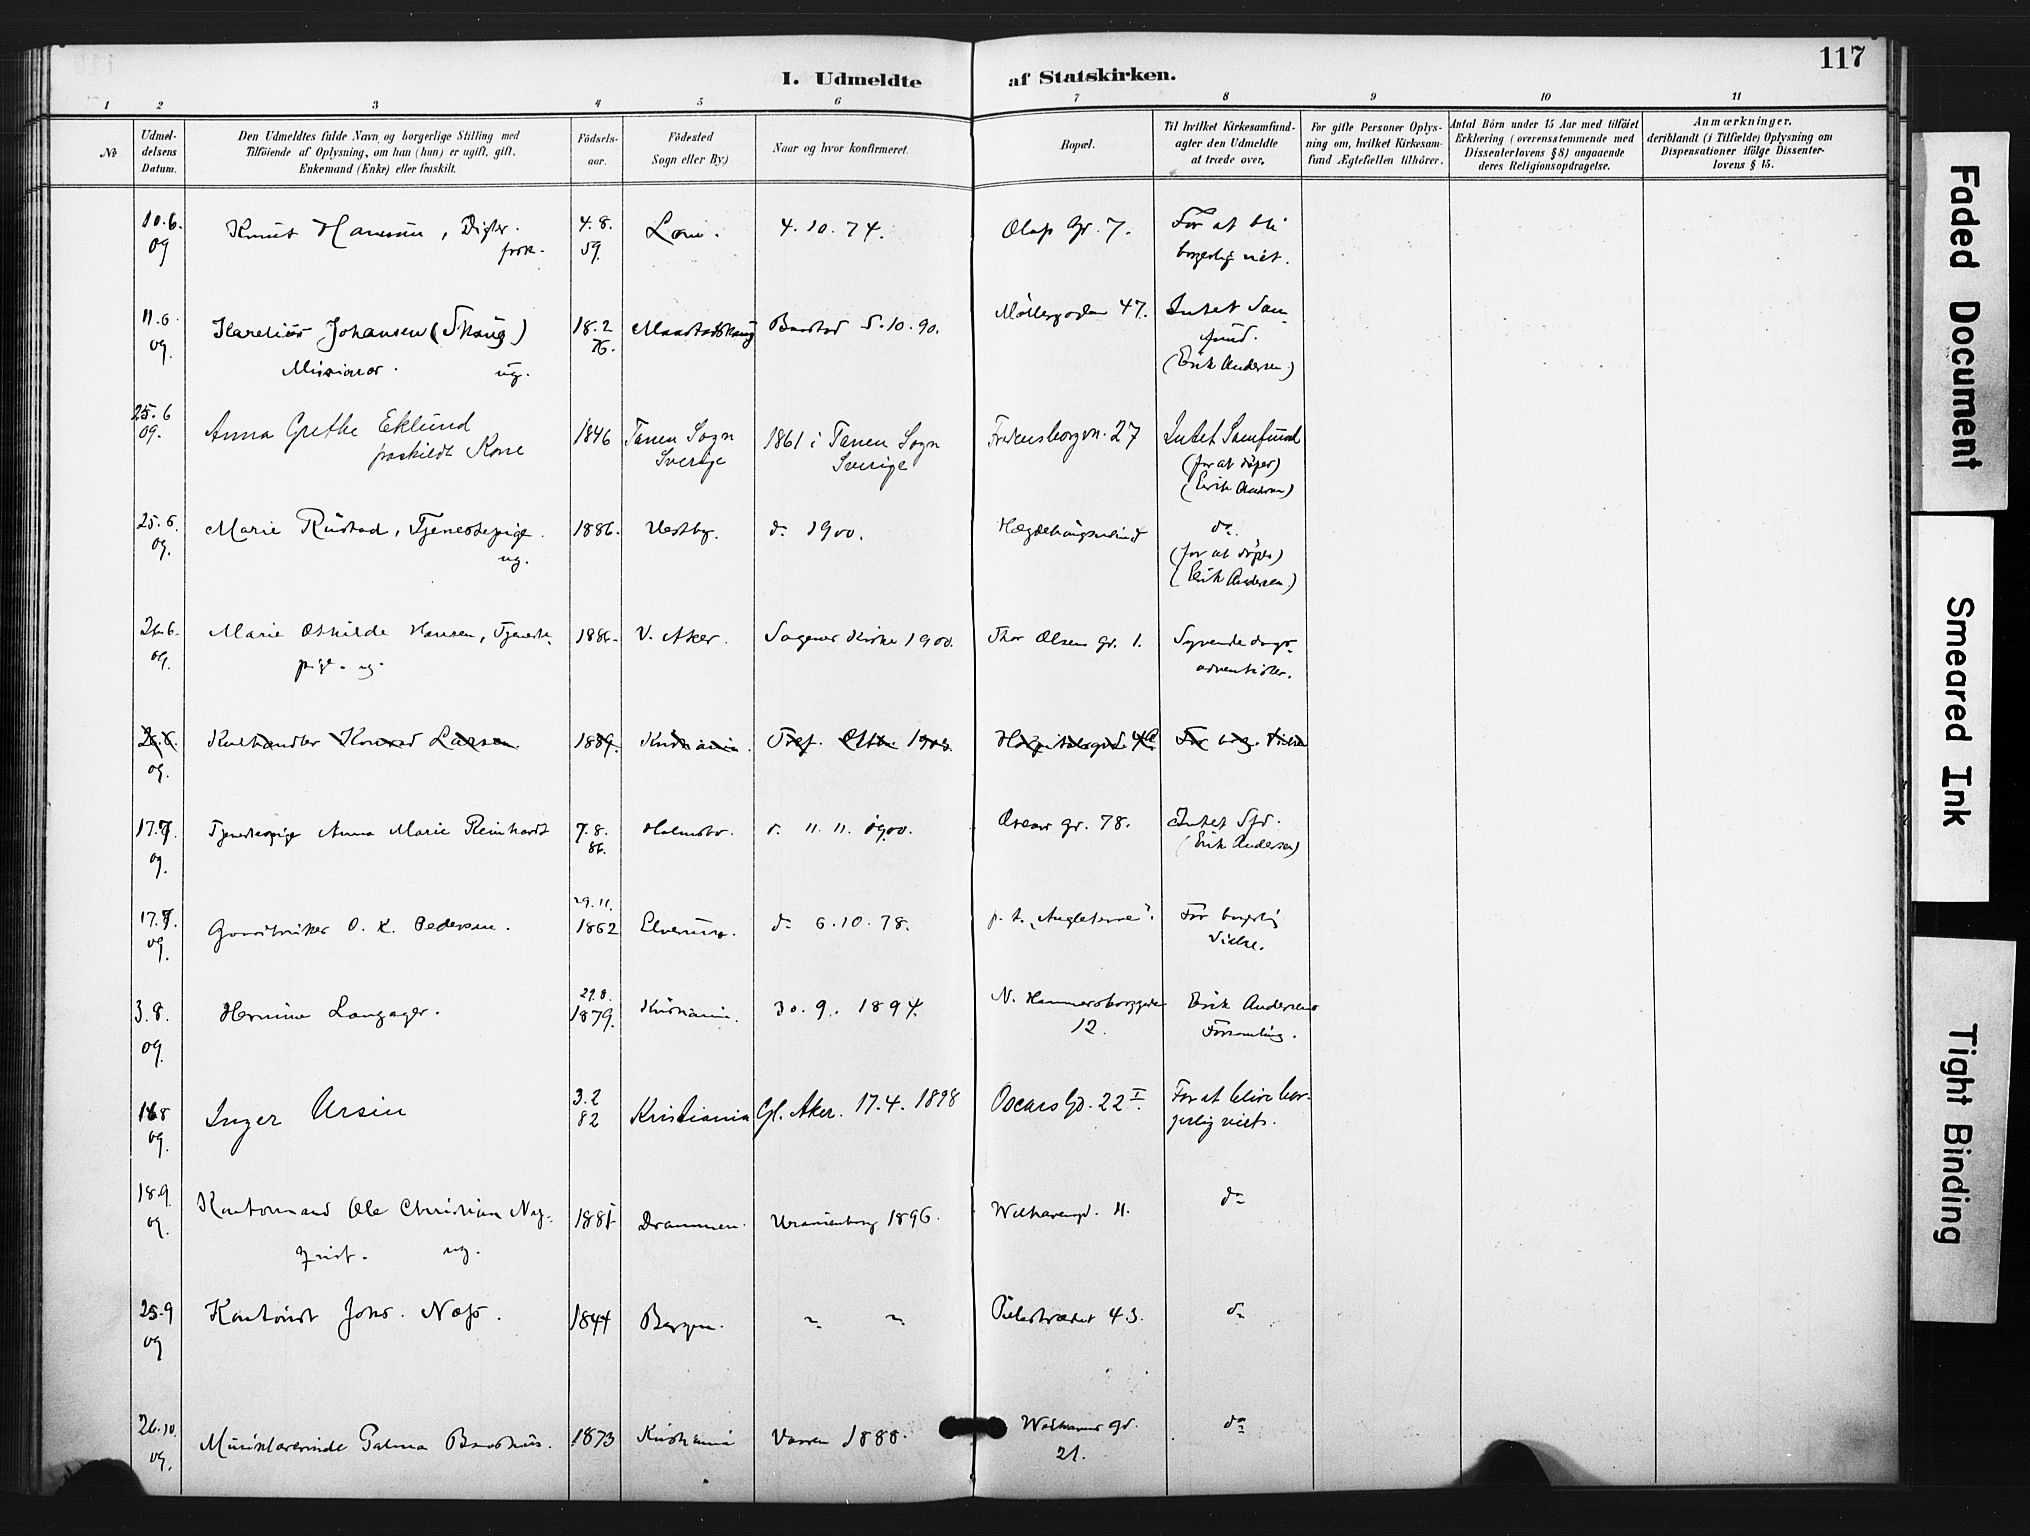 117
I. Udmeldte af Statskirken.
1 2 3 4 5 6 7 8 9 10 11
No
Udmel-
delsens
Datum.
Den Udmeldtes fulde Navn og borgerlige Stilling med
Tilföiende af Oplysning, om han (hun) er ugift, gift,
Enkemand (Enke) eller fraskilt.
Födsels-
aar.
Födested
Sogn eller By)
Naar og hvor konfirmeret.
Bopæl.
Til hvilket Kirkesamfund-
agter den Udmeldte
at træde over,
For gifte Personer Oplys-
ning om, hvilket Kirkesam-
fund Ægtefællen tilhörer.
Antal Börn under 15 Aar med tilföiet
Erklæring (overensstemmende med
Dissenterlovens § 8) angaaende
deres Religionsopdragelse.
Anmærkninger,
deriblandt (i Tilfælde) Oplysning om
Dispensationer ifölge Dissenter-
lovens § 15.
10.6. Knut Hamsun, Digter. 4.8. Lom. 4.10.74. Olaf Gr. 7. For at bli
09 frsk. 59. borgerlig viet.
11.6. Karelius Johansen (Skaug) 18.2 Maastadskaug Baastad 5.10.90. Möllergaden 47. Intet Sam-
09. Missionær. ug. 76. fund.
(Erik Andersen)
25.6 Anna Grethe Eklund 1846 Tanem Sogn 1861 i Tanem Sogn Fredensborgvn. 27 Intet Samfund
09. fraskildt Kone Sverige Sverige (for at döpes)
(Erik Andersen)
25.6. Marie Rustad, Tjenestepige. 1886. Vestby. do 1900. Hægdehaugsveien do.
09. ug. (for at döpes)
(Erik Andersen)
26.6. Marie Othilde Hansen, Tjeneste- 1886. V. Aker. Sagene Kirke 1900. Thor Olsens gr. 1. Syvende dags-
09. pige. ug. adventister.
26.6. Kulhandler Konrad Larsen. 1889. Kristiania. Tref. 1903. Hospitalsgd. 4a For borg. Vielse
09.
17.7. Tjenestepige Anna Marie Reinhardt 7.8. Holmsbo. d. 11.11. 1900. Oscars gr. 78. Intet Sfd.
09. 86. (Erik Andersen)
17.7. Gaardbruker O. K. Pedersen. 29.11. 1862 Elverum. do 6.10.78. p. t. „Angleterre“. For borgerlig
09. Vielse.
3.8. Hermine Langager. 29.8. 1879. Kristiania. 30.9. 1894. N. Hammersborggade Erik Andersens
09. 12. Forsamling.
16.8 Inger Ursin 3.2 Kristiania Gl. Aker. 17.4.1898 Oscars Gd. 22 I. For at blive bor-
09. 82 gerlig viets.
18.9. Kontormand Ole Christian Ny- 1881. Drammen. Uranienborg 1896. Welhavensgd. 11. do
09. quist. ug.
25.9 Kontorist Johs. Næss. 1844 Bergen. " " Pilestrædet 43. do
09
26.10. Musiklærerinde Palma 1873 Kristiania Vaaren 1888. Welhavens gd. do
09. 21.
Faded Document
Smeared Ink
Tight Binding